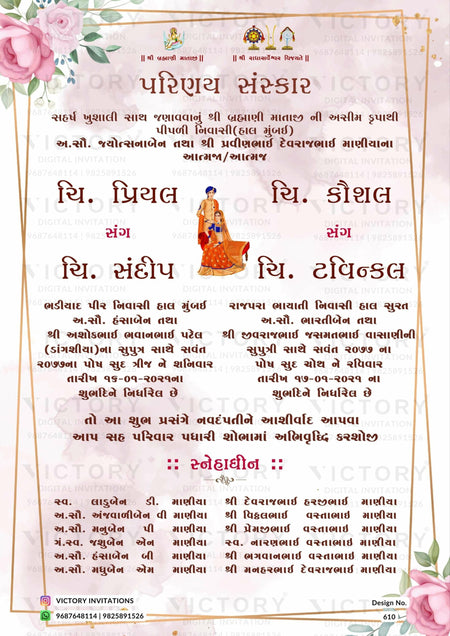 || શ્રી બ્રહ્માણી માતાજી ||
|| શ્રી રાધાસર્વેશ્વર વિજયતે ||
પરિણય સંસ્કાર
સહર્ષ ખુશાલી સાથ જણાવવાનું શ્રી બ્રહ્માણી માતાજી ની અસીમ કૃપાથી
પીપળી નિવાસી(હાલ મુંબઈ)
અ.સૌ. જ્યોત્સનાબેન તથા શ્રી પ્રવીણભાઈ દેવરાજભાઈ માણીયાના
આત્મજા/આત્મજ
ચિ. પ્રિયલ
સંગ
ચિ. સંદીપ
ભડીયાદ પીર નિવાસી હાલ મુંબઈ
અ.સૌ. હંસાબેન તથા
શ્રી અશોકભાઈ ભવાનભાઈ પટેલ
(ડાંગશીયા)ના સુપુત્ર સાથે સવંત
૨૦૭૭ના પોષ સુદ ત્રીજ ને શનિવાર
તારીખ ૧૬-૦૧-૨૦૨૧ના
શુભદિને નિર્ધારેલ છે
ચિ. કૌશલ
સંગ
ચિ. ટવિન્કલ
રાજપરા ભાયાતી નિવાસી હાલ સુરત
અ.સૌ. ભારતીબેન તથા
શ્રી જીવરાજભાઈ જસમતભાઈ વાસાણીની
સુપુત્રી સાથે સવંત ૨૦૭૭ ના
પોષ સુદ ચોથ ને રવિવાર
તારીખ ૧૭-૦૧-૨૦૨૧ ના
શુભદિને નિર્ધારેલ છે
તો આ શુભ પ્રસંગે નવદંપતીને આશીર્વાદ આપવા
આપ સહ પરિવાર પધારી શોભામાં અભિવૃધ્ધિ કરશોજી
:: સ્નેહાધીન ::
સ્વ. લાડુબેન ડી. માણીયા શ્રી દેવરાજભાઈ હરજીભાઈ માણીયા
અ.સૌ. અંજવાળીબેન વી માણીયા શ્રી વિઠ્ઠલભાઈ વસ્તાભાઈ માણીયા
અ.સૌ. મનુબેન પી માણીયા શ્રી પ્રેમજીભાઈ વસ્તાભાઈ માણીયા
ગં.સ્વ. જશુબેન એન માણીયા સ્વ. નારણભાઈ વસ્તાભાઈ માણીયા
અ.સૌ. હંસાબેન બી માણીયા શ્રી ભગવાનભાઈ વસ્તાભાઈ માણીયા
અ.સૌ. મધુબેન એમ માણીયા શ્રી મનહરભાઈ દેવરાજભાઈ માણીયા
VICTORY INVITATIONS
9687648114 | 9825891526
Design No.
610